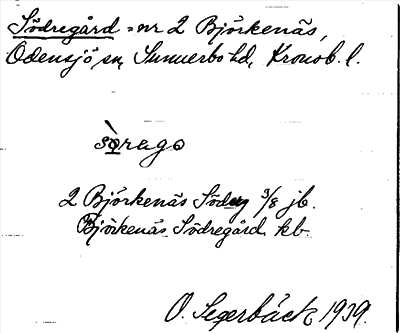 Södregård = nr 2 Björkenäs,
Odensjö sn, Sunnerbo hd, Kronob. l.
sòrago
2 Björkenäs Söderg 3/8 jb.
Björkenäs Södregård kb.
O. Segerbäck 1939.